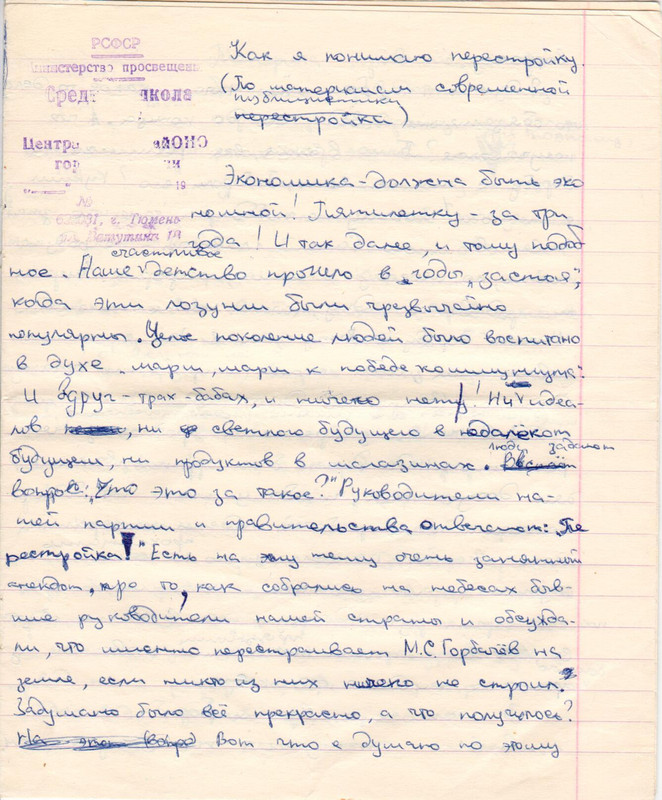 РСФСР
Министерство просвещен
Средн школа
Центра РАЙОНО
гор
19
№
г. Тюмень
Как я понимаю перестройку.
(По материалам современной
публицистики
перестройка)
Экономика - должна быть эко
номной! Пятилетку - за три
года! И так далее, и тому подоб
счастливое
ное. Наше детство прошло в годы „застоя",
когда эти лозунги были чрезвычайно
популярны. Целое поколение людей было воспитано
в духе „марш, марш к победе коммунизма."
И вдруг - трах-бабах, и ничего нету! Ни идеа-
лов, ни светлого будущего в недалёком
будущем, ни продуктов в магазинах.
люди задают
вопрос: „Что это за такое?" Руководители на-
шей партии и правительства отвечают: „Пе
рестройка!" Есть на эту тему очень занятный
анекдот, про то, как собрались на небесах быв-
шие руководители нашей страны и обсужда-
ли, что именно перестраивает М.С. Горбачёв на
земле, если никто из них ничего не строил?
Задумано было всё прекрасно, а что получилось?
На это (вопро) Вот что я думаю по этому